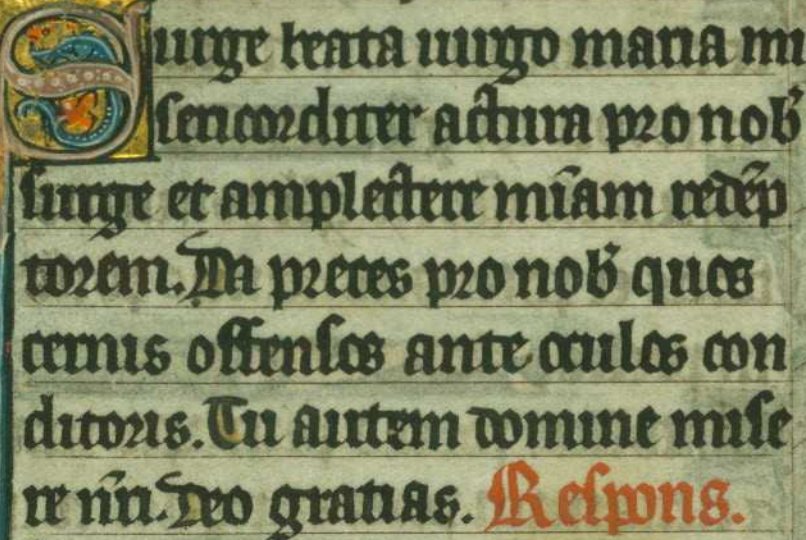 Surge beata uirgo maria mi
sericorditer actura pro nob̄
surge et amplectere mīam redēp
torem. Da preces pro nob̄ quos
cernis offensos ante oculos con
ditoris. Tu autem domine mise
re nr̄i. Deo gratias. Respons.